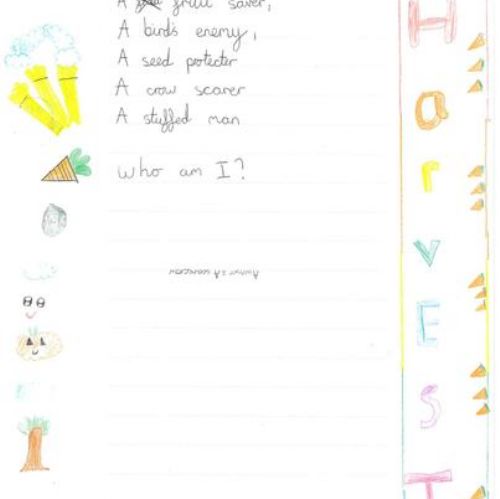 A fruit saver,
A birds enemy,
A seed protecter
A crow scarer
A stuffed man
who am I?
Answer: A scarecrow
HarvEST